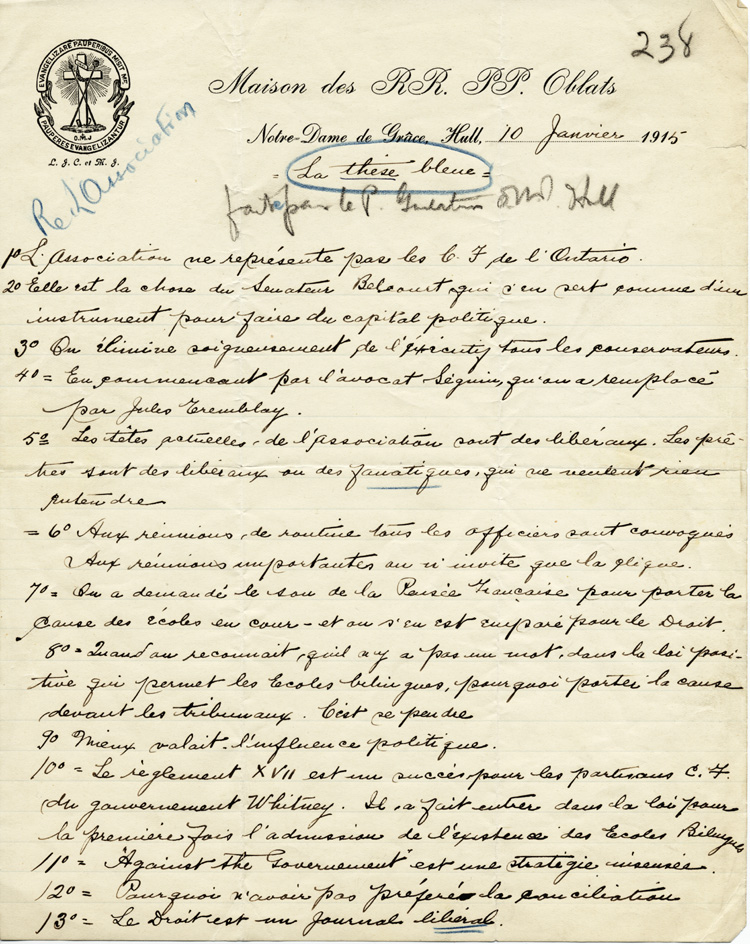 238
EVANGELIZARE PAUPERIBUS MISIT ME
PAUPERES EVANGELIZANTUR
O.M.I
L. J. C. et M. I.
Maison des RR. PP. Oblats
Notre-Dame de Grâce, Hull, 10 Janvier 1915
Re L'Association
= La thèse bleue =
fait par le P. Guertin O.M.I. Hull
1o L'Association ne représente pas les C. F de l'Ontario.
2o Elle est la chose du Senateur Belcourt, qui s'en sert comme d'un
instrument pour faire du capital politique.
3o On élimine soigneusement de l'éxécutif tous les conservateurs.
4o = En commencant par l'avocat Séguin, qu'on a remplacé
par Jules Tremblay.
5o Les têtes actuelles de l'Association sont des libéraux. Les prê-
tres sont des libéraux ou des fanatiques, qui ne veulent rien
entendre
= 6o Aux réunions de routine tous les officiers sont convoqués
Aux réunions importantes on n'invite que la clique.
7o = On a demandé le sou de la Pensée Française pour porter la
cause des écoles en cour - et on s'en est emparé pour le Droit.
8o = Quand on reconnait, qu'il n'y a pas un mot, dans la loi posi-
tive qui permet les Ecoles bilingues, pourquoi porter la cause
devant les tribunaux. C'est se pendre
9o Mieux valait l'influence politique.
10o = Le règlement XVII est un succès pour les partisans C. F.
du gouvernement Whitney. Il a fait entrer dans la loi pour
la première fois l'admission de l'existence des Ecoles Bilingues
11o = "Against the Governement" est une stratégie insensée.
12o = Pourquoi n'avoir pas préféré la conciliation
13o = Le Droit est un Journal libéral.